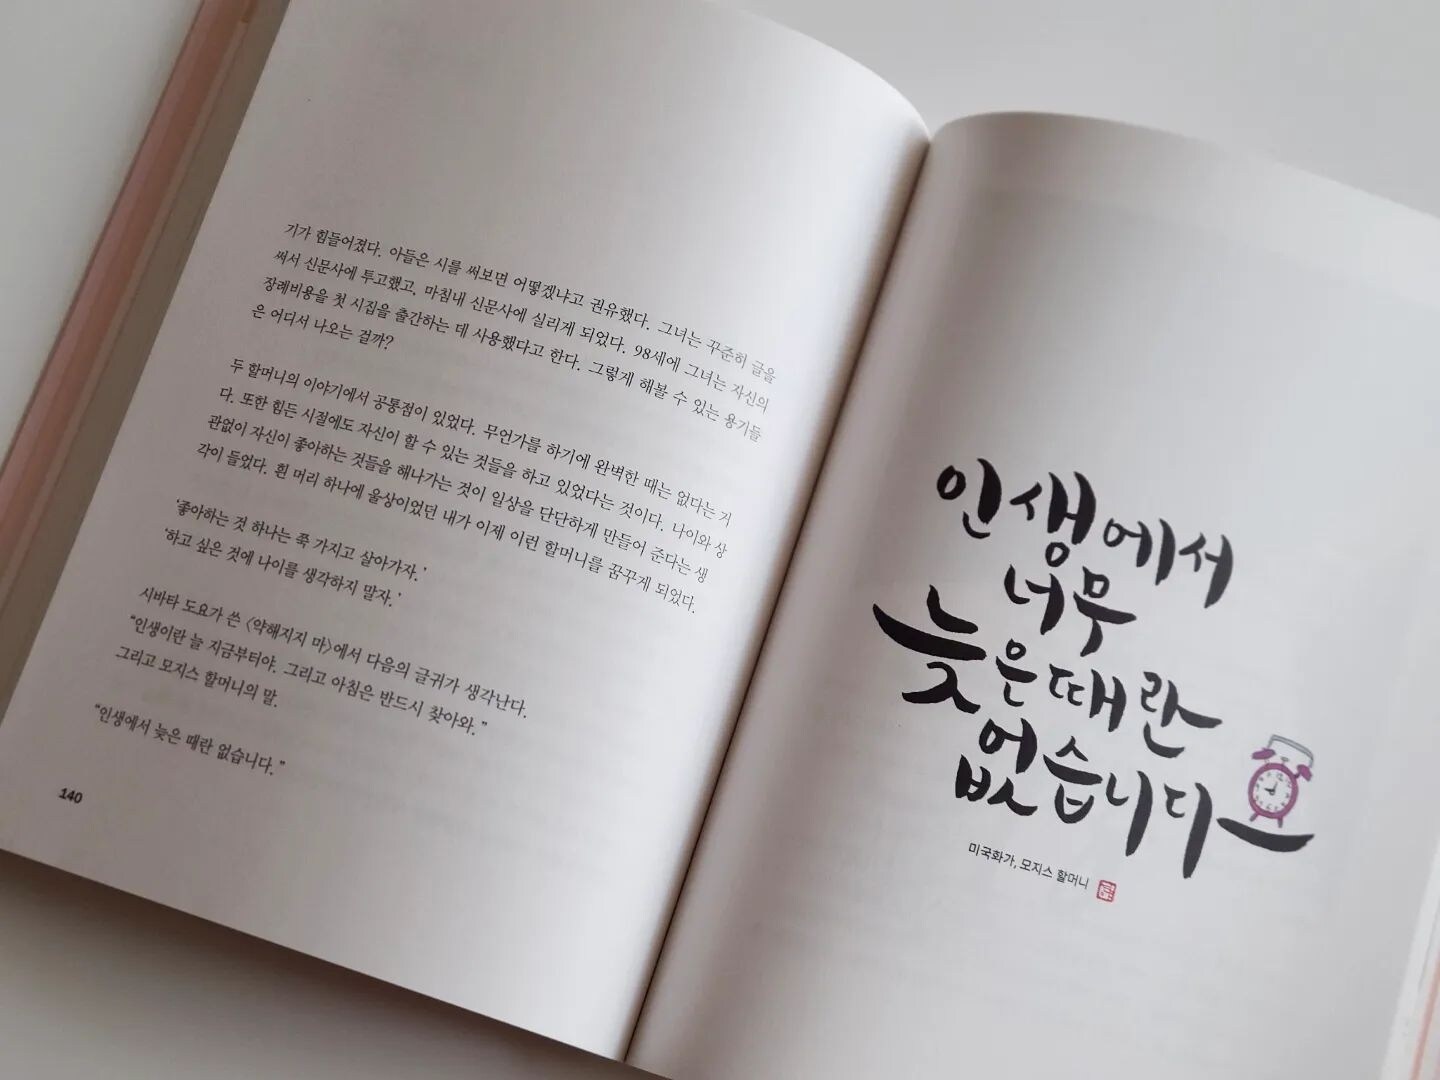 기가 힘들어졌다. 아들은 시를 써보면 어떻겠냐고 권유했다. 그녀는 꾸준히 글을
써서 신문사에 투고했고, 마침내 신문사에 실리게 되었다. 98세에 그녀는 자신의
장례비용을 첫 시집을 출간하는 데 사용했다고 한다. 그렇게 해볼 수 있는 용기들
은 어디서 나오는 걸까?
두 할머니의 이야기에서 공통점이 있었다. 무언가를 하기에 완벽한 때는 없다는 거
다. 또한 힘든 시절에도 자신이 할 수 있는 것들을 하고 있었다는 것이다. 나이와 상
관없이 자신이 좋아하는 것들을 해나가는 것이 일상을 단단하게 만들어 준다는 생
각이 들었다. 흰 머리 하나에 울상이었던 내가 이제 이런 할머니를 꿈꾸게 되었다.
‘좋아하는 것 하나는 쭉 가지고 살아가자.’
‘하고 싶은 것에 나이를 생각하지 말자.’
시바타 도요가 쓴 〈약해지지 마〉에서 다음의 글귀가 생각난다.
“인생이란 늘 지금부터야. 그리고 아침은 반드시 찾아와.”
그리고 모지스 할머니의 말.
“인생에서 늦은 때란 없습니다.”
140
인생에서
너무
늦은 때란
없습니다
미국화가, 모지스 할머니